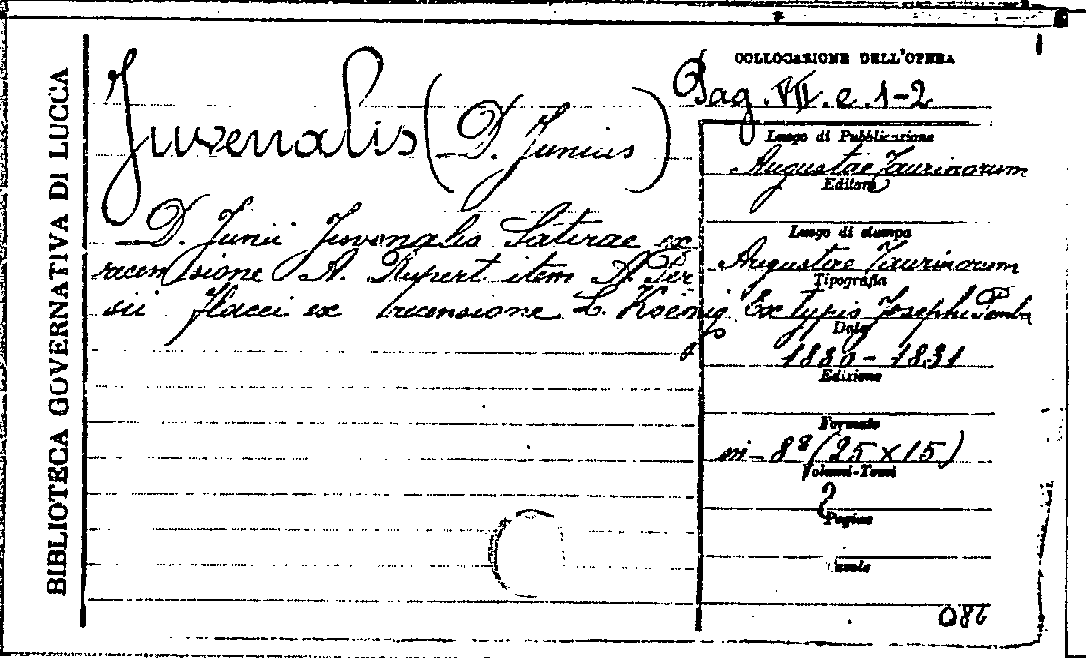 BIBLIOTECA GOVERNATIVA DI LUCCA
Juvenalis (D. Junius)
D. Junii Juvenalis Satirae ex
recensione A. Rupert item A. Per
sii flacci ex recensione L. Koenig
COLLOCAZIONE DELL'OPERA
Pag. VII. e. 1-2
Luogo di Pubblicazione
Augustae Taurinorum
Editore
Luogo di stampa
Augustae Taurinorum
Tipografia
Ex typis Josephi Pomba
Data
1830 - 1831
Edizione
Formato
in-8º (25 x 15)
Volumi-Tomi
2
Pagine
Tavole
086